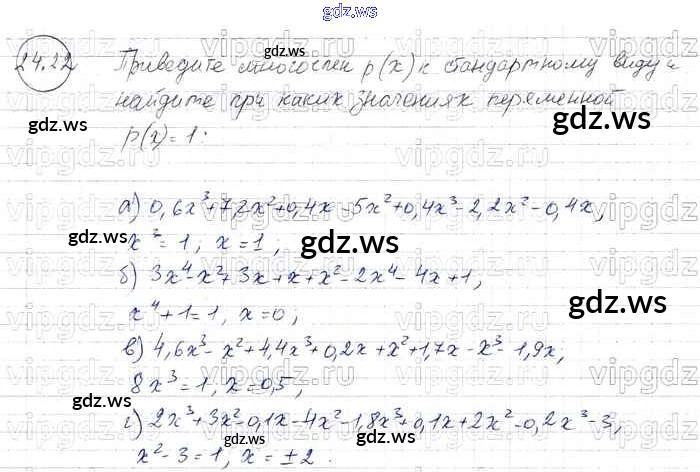 gdz.ws
24.22 Приведите многочлен p(x) к стандартному виду и
найдите при каких значениях переменной
p(x) = 1:
а) 0,6x³+7,2x²+0,4x-5x²+0,4x³-2,2x²-0,4x,
x³=1, x=1,
б) 3x⁴-x²+3x+x+x²-2x⁴-4x+1,
x⁴+1=1, x=0;
в) 4,6x³-x²+4,4x³+0,2x+x²+1,7x-x³-1,9x;
8x³=1, x=0,5,
г) 2x³+3x²-0,1x-4x²-1,8x³+0,1x+2x²-0,2x³-3,
x²-3=1, x=±2.
vipgdz
gdz.ws